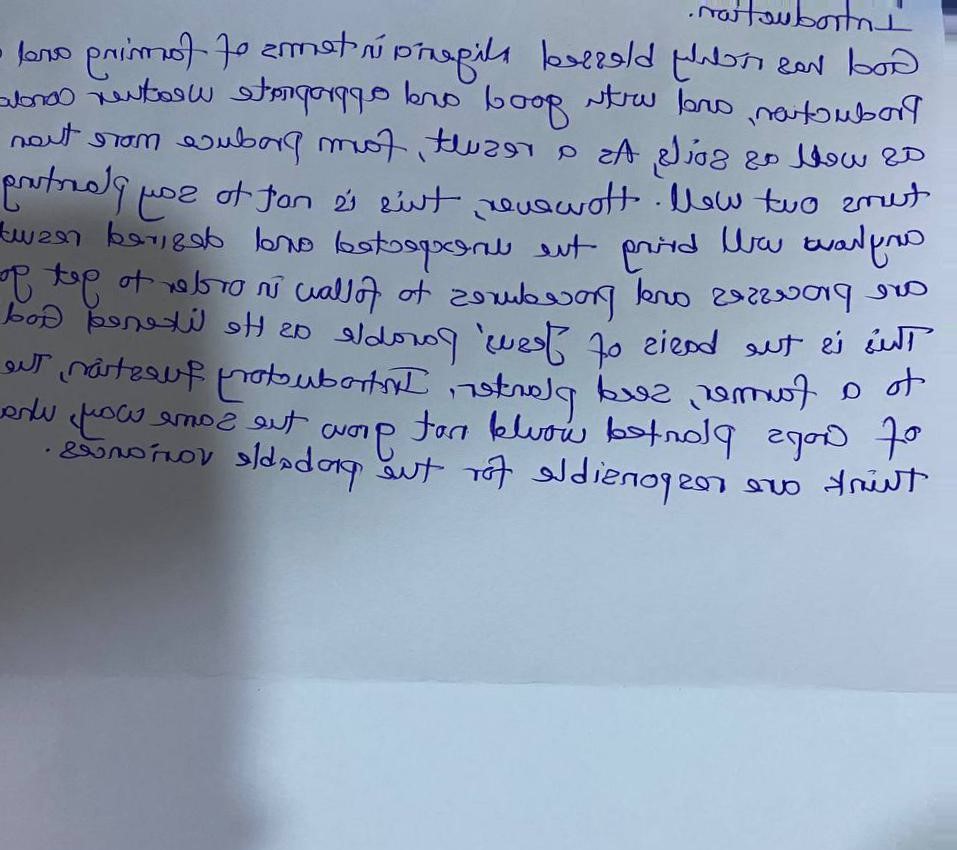 Introduction.
God has richly blessed Nigeria in terms of farming and
Production, and with good and appropriate weather
as well as soils. As a result, farm produce more than
turns out well. However, this is not to say planting
anyhow will bring the unexpected and desired result
are processes and procedures to follow in order to get
This is the basis of Jesus' parable as He likened God
to a farmer, seed planter. Introductory Question, The
of Crops planted would not grow the same way,
think are responsible for the probable variances.